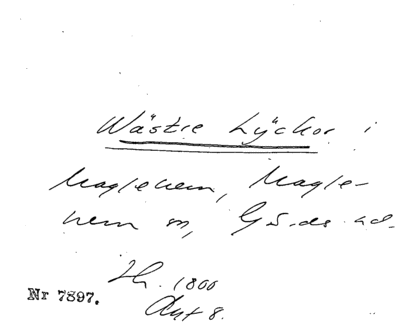 Wästre Lyckor i
Maglehem, Magle-
hem sn, Gärds hd.
1800
Akt 8.
Nr 7897.